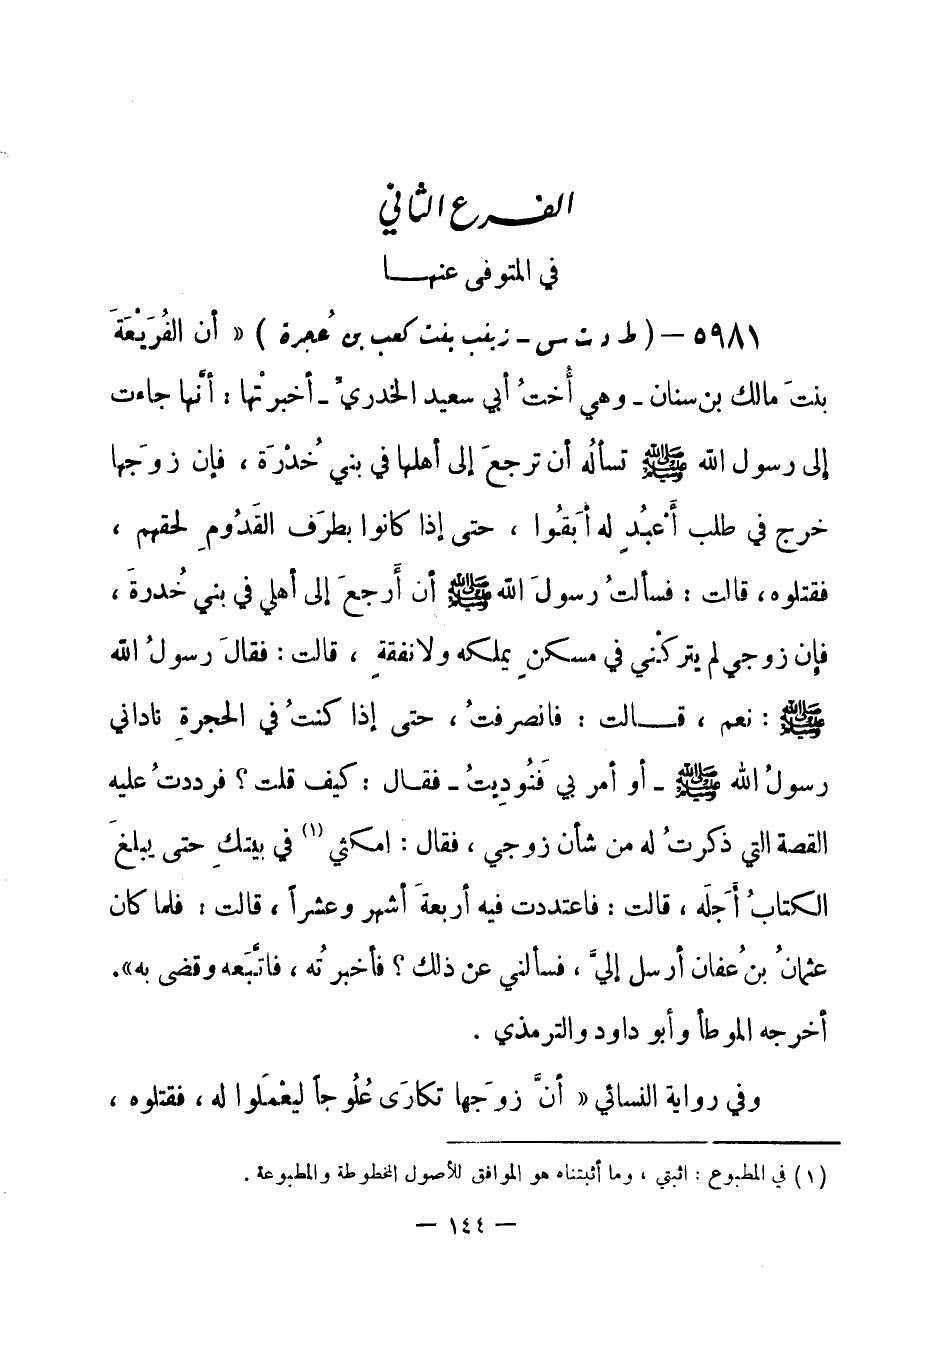 الفرع الثاني
في المتوفى عنها
٥٩٨١ – ( ط د ت س - زينب بنت كعب بن عُجرة ) « أن الفُرَيْعَةَ
بنتَ مالك بن سنان - وهي أُختُ أبي سعيد الخدريِّ - أخبرتْها : أنَّها جاءت
إلى رسول الله ﷺ تسألُه أن ترجعَ إلى أهلها في بني خُدْرَة ، فإن زوجَها
خرج في طلب أَعْبُدٍ له أبَقُوا ، حتى إذا كانوا بطرَف القَدُومِ لحقهم ،
فقتلوه، قالت : فسألتُ رسولَ الله ﷺ أن أَرجعَ إلى أهلي في بني خُدرةَ ،
فإن زوجي لم يتركْني في مسكنٍ يملكه ولا نفقةٍ ، قالت : فقالَ رسولُ الله
ﷺ : نعم ، قالت : فانصرفتُ ، حتى إذا كنتُ في الحجرةِ ناداني
رسولُ الله ﷺ - أو أمر بي فَنُودِيتُ - فقال : كيف قلت ؟ فرددتُ عليه
القصة التي ذكرتُ له من شأن زوجي ، فقال : امكثي (١) في بيتكِ حتى يبلغَ
الكتابُ أَجَلَه ، قالت : فاعتددت فيه أربعةَ أشهر وعشراً ، قالت : فلما كان
عثمانُ بنُ عفان أرسل إليَّ ، فسألني عن ذلك ؟ فأخبرتُه ، فاتَّبَعه وقضى به».
أخرجه الموطأ وأبو داود والترمذي .
وفي رواية النسائي « أنَّ زوجَها تكارَى عُلُوجاً ليعْمَلوا له ، فقتلوه ،
(١) في المطبوع : اثبتي ، وما أثبتناه هو الموافق للأصول المخطوطة والمطبوعة .
– ١٤٤ –